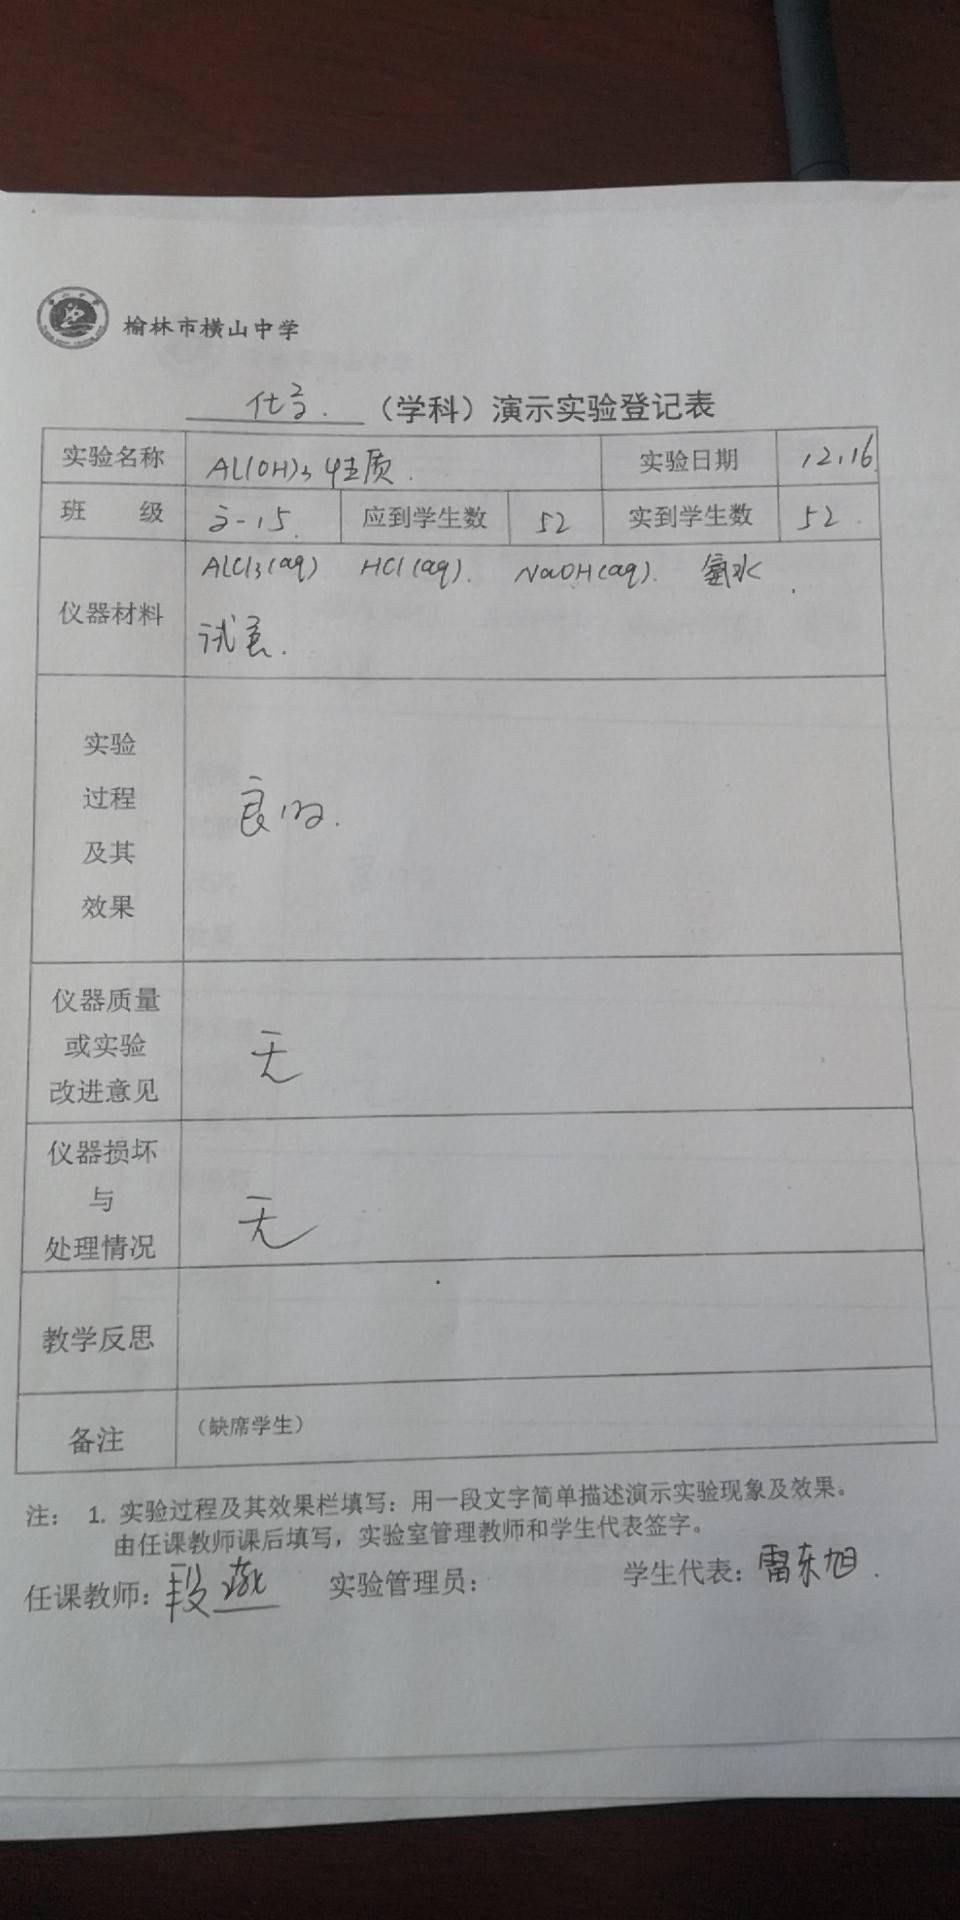 榆林市横山中学
化学. （学科）演示实验登记表
实验名称 Al(OH)3 性质. 实验日期 12.16
班 级 高一15. 应到学生数 52 实到学生数 52.
仪器材料 AlCl3(aq) HCl(aq). NaOH(aq). 氨水
试管.
实验
过程
及其
效果
良好.
仪器质量
或实验
改进意见
无
仪器损坏
与
处理情况
无
教学反思
备注 （缺席学生）
注： 1. 实验过程及其效果栏填写：用一段文字简单描述演示实验现象及效果。
由任课教师课后填写，实验室管理教师和学生代表签字。
任课教师：段燕 实验管理员： 学生代表：雷东旭.